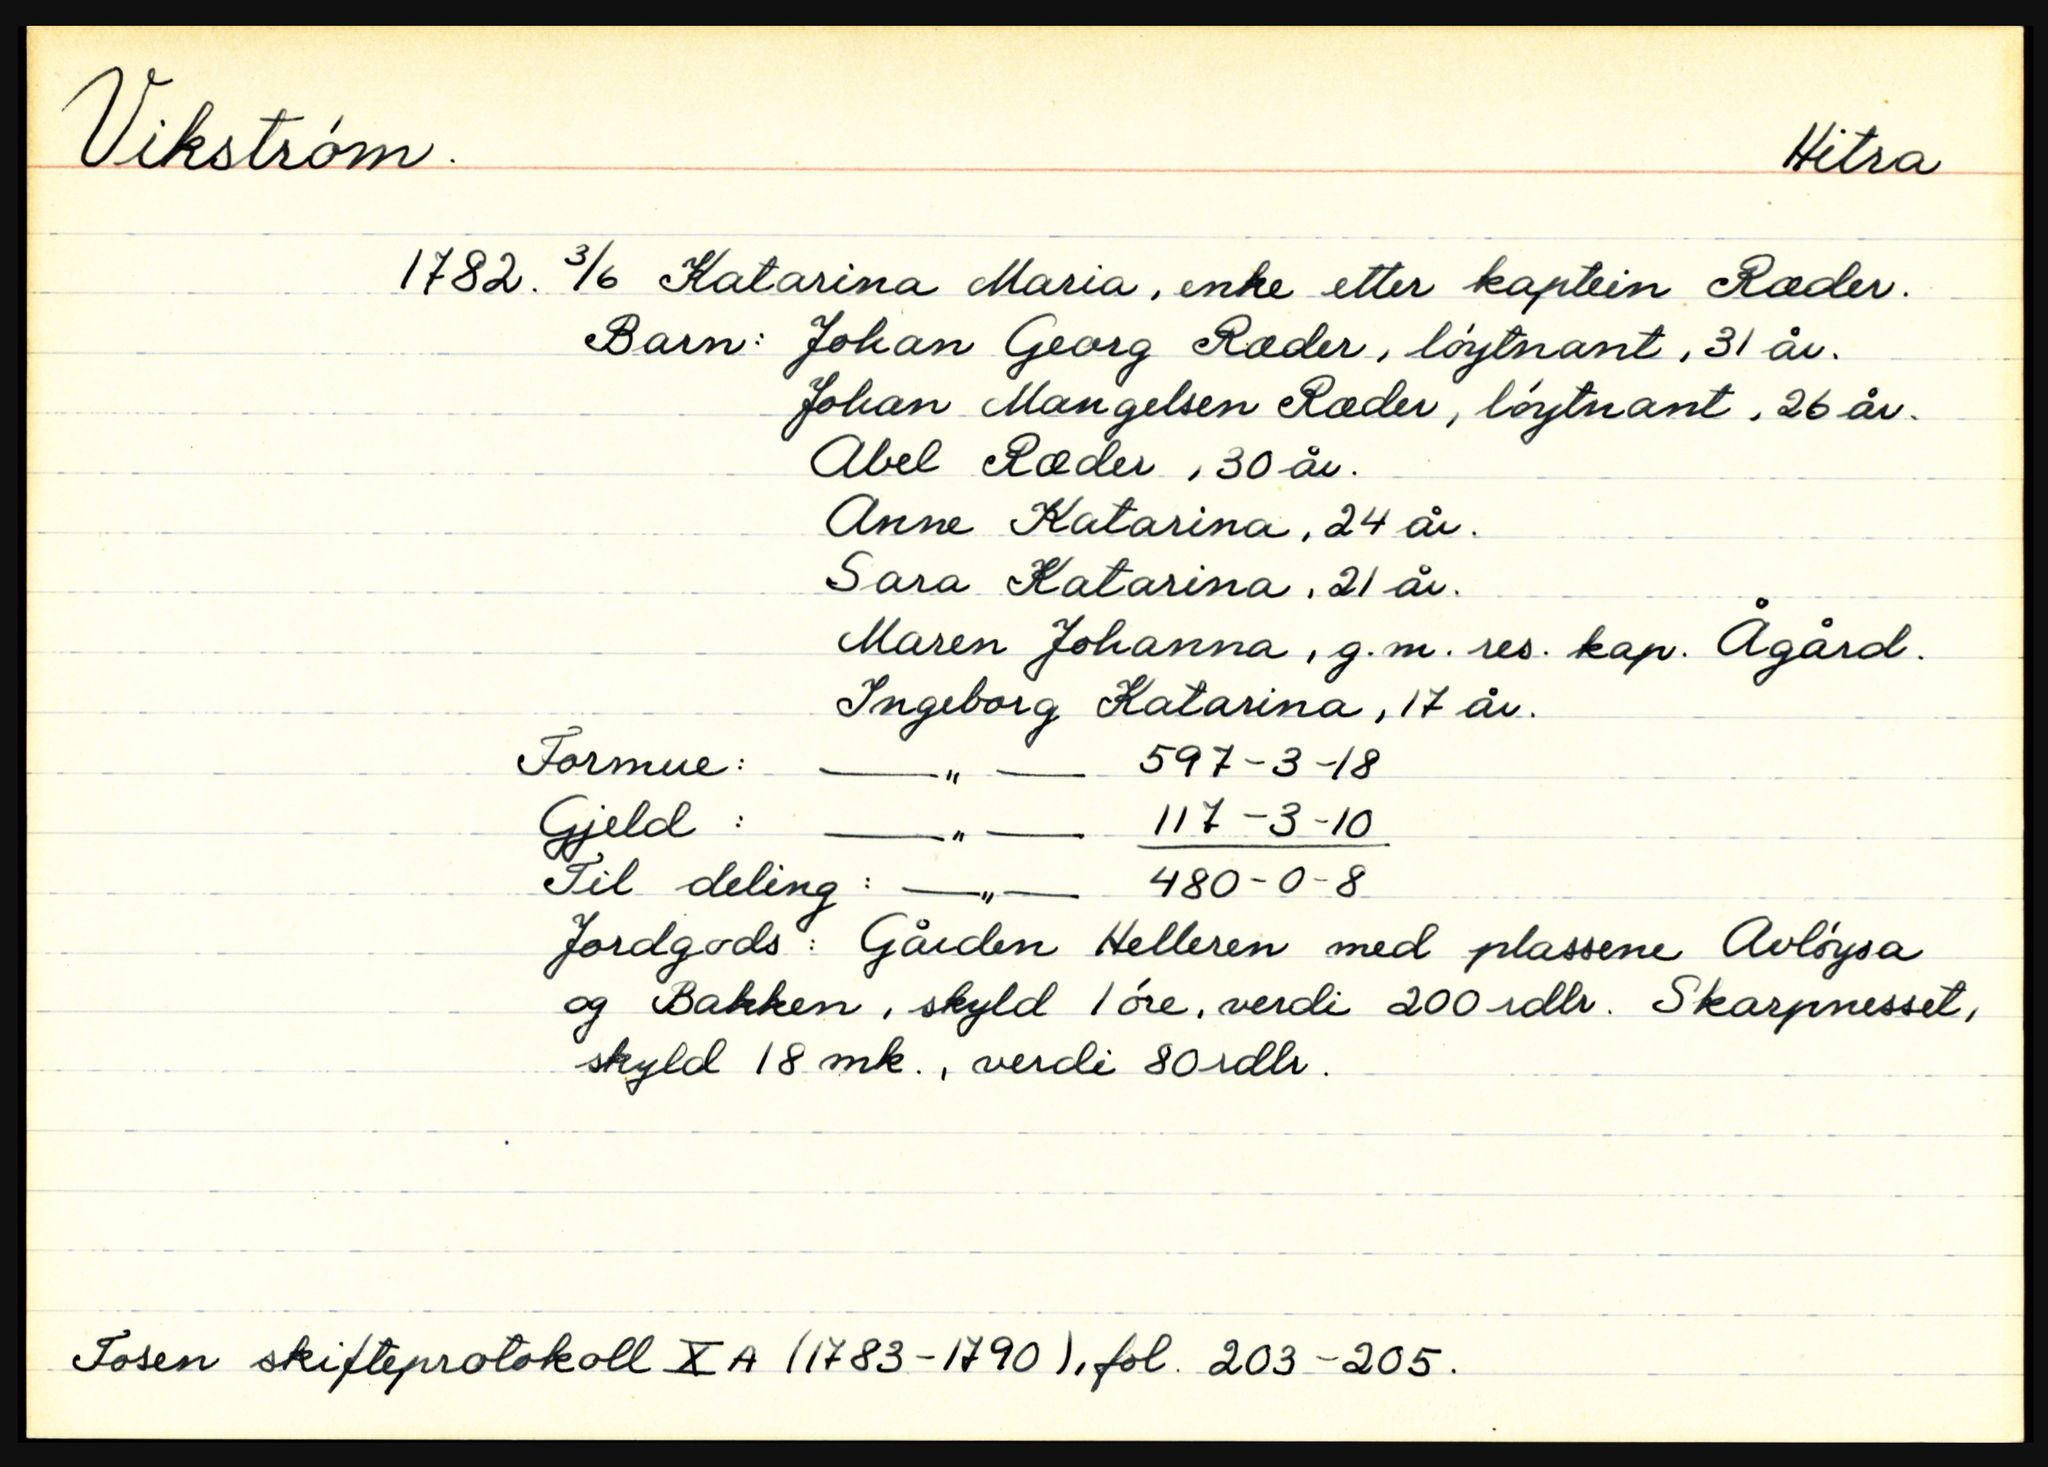 Vikstróm. Hitra
1782. 3/6 Katarina Maria, enke etter kaptein Ræder.
Barn: Johan Georg Ræder, lóytnant, 31 år.
Johan Mangelsen Ræder, lóytnant, 26 år.
Abel Ræder, 30 år.
Anne Katarina, 24 år.
Sara Katarina, 21 år.
Maren Johanna, g.m. res. kap. Ågård.
Ingeborg Katarina, 17 år.
Formue: —„— 597-3-18
Gjeld: —„— 117-3-10
Til deling: —„— 480-0-8
Jordgods: Gården Helleren med plassene Avlóysa
og Bakken, skyld 1 óre, verdi 200 rdlr. Skarpnesset,
skyld 18 mk., verdi 80 rdlr.
Fosen skifteprotokoll X A (1783-1790), fol. 203-205.